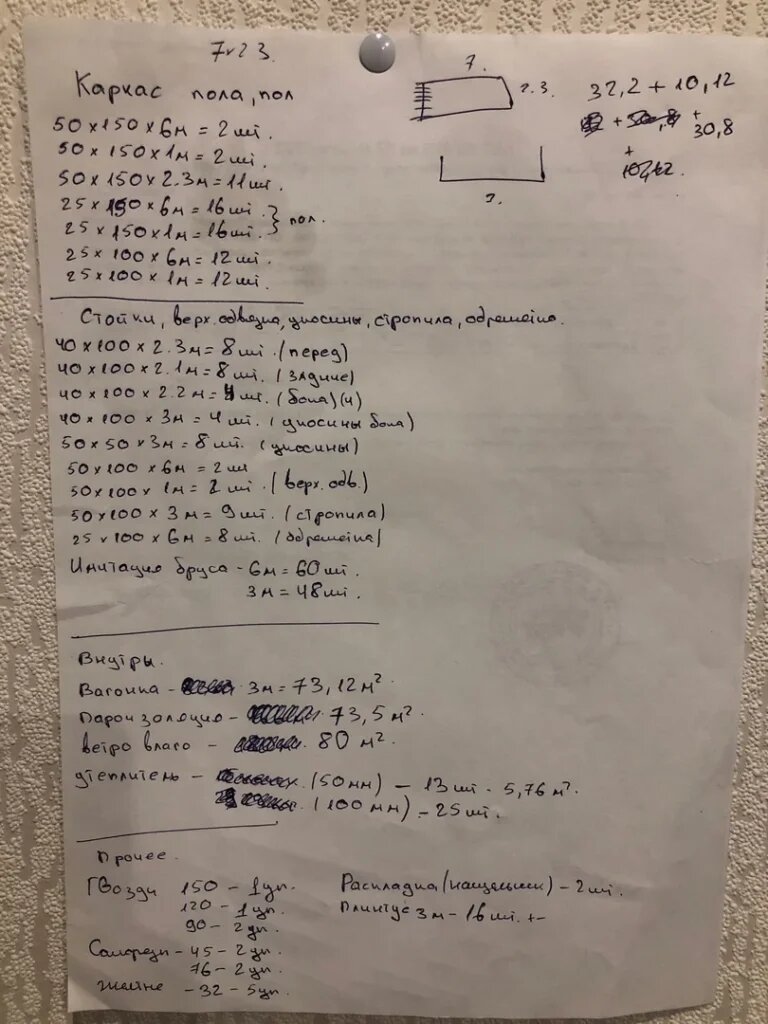 7×2 3.
Каркас пола, пол
50×150×6м = 2шт.
50×150×1м = 2шт.
50×150×2.3м = 11шт.
25×150×6м = 16шт.
25×150×1м = 16шт. } пол.
25×100×6м = 12шт.
25×100×1м = 12шт.
7.
2.3.
7.
32,2 + 10,12
+
30,8
+
Стойки, верх. обвязка, укосины, стропила, обрешетка.
40×100×2.3м = 8шт. (перед)
40×100×2.1м = 8шт. (задние)
40×100×2.2м = 4шт. (бока)(4)
40×100×3м = 4шт. (укосины бока)
50×50×3м = 8шт. (укосины)
50×100×6м = 2шт
50×100×1м = 2шт. (верх. обв.)
50×100×3м = 9шт. (стропила)
25×100×6м = 8шт. (обрешетка)
Имитация бруса - 6м = 60шт.
3м = 48шт.
Внутры.
Вагонка - 3м = 73,12м²
Пароизоляцию - 73,5м².
ветро влаго - 80м².
утеплитель - (50мм) - 13шт - 5,76м².
(100мм) - 25шт.
Прочее.
Гвозди 150 - 1уп.
120 - 1уп.
90 - 2уп.
Саморезы - 45 - 2уп.
76 - 2уп.
- 32 - 5уп.
Раскладка (нащельник) - 2шт.
Плинтус 3м - 16шт. +-